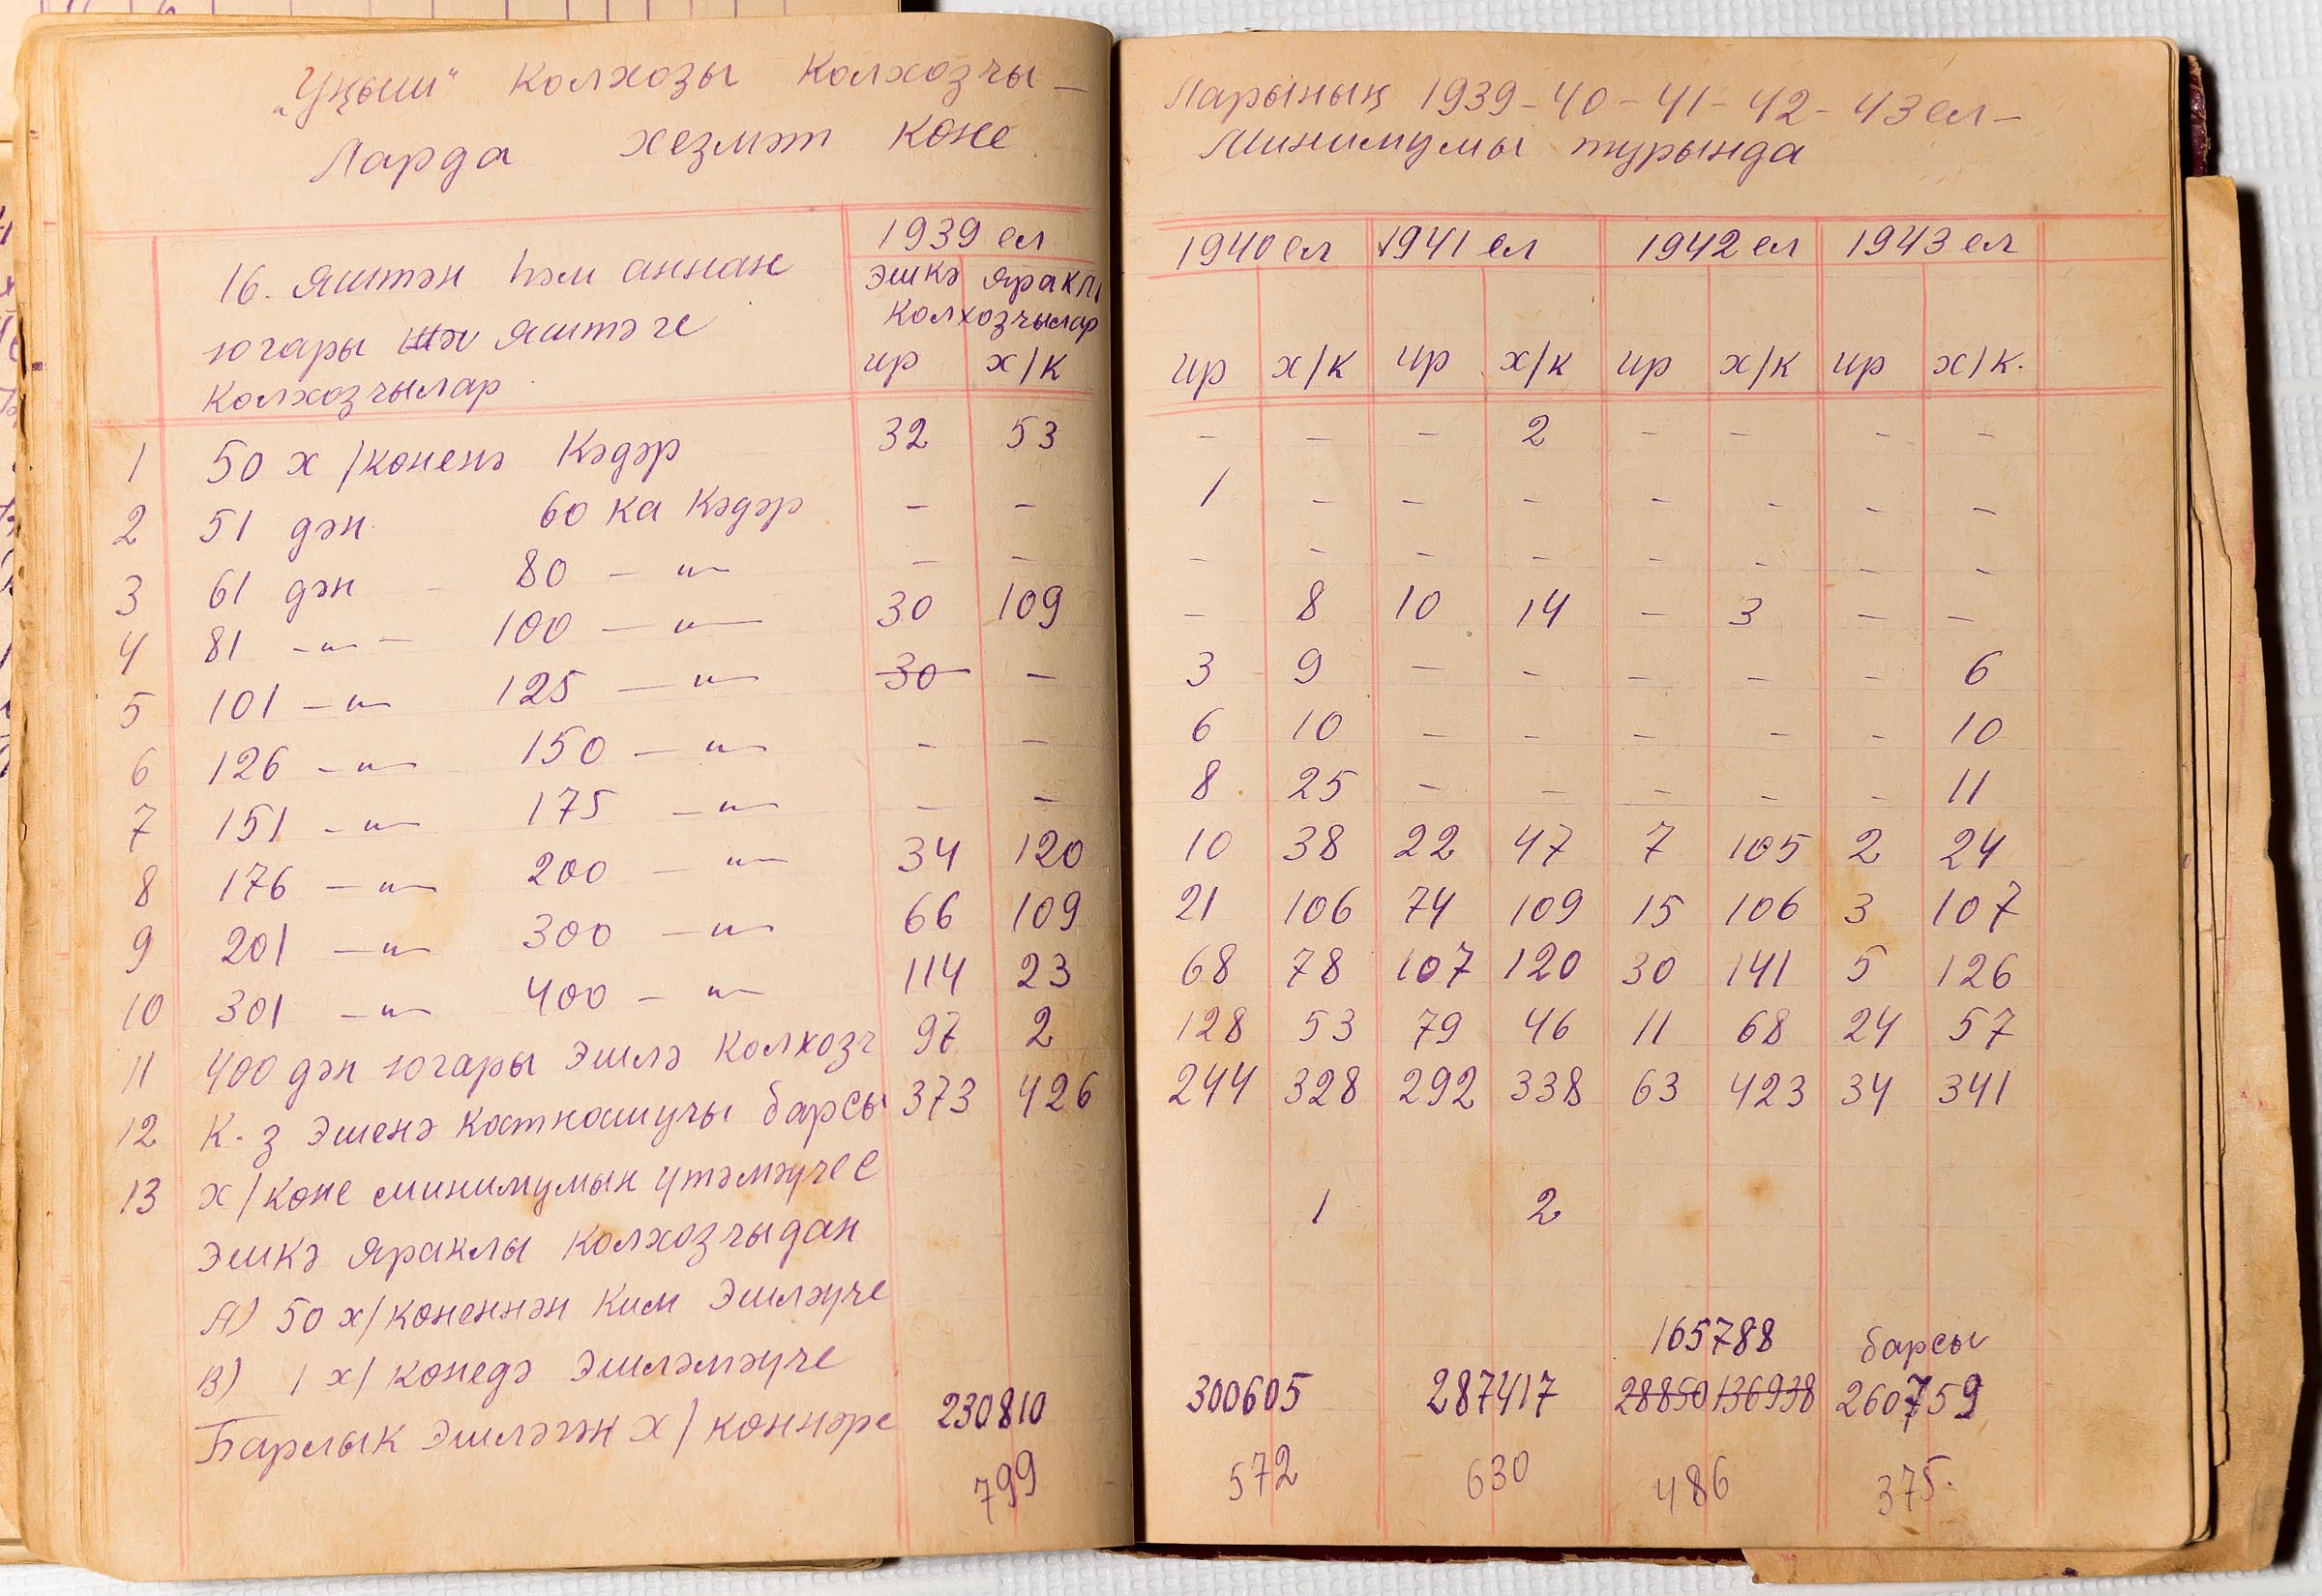 „Уңыш“ колхозы колхозчы- ларының 1939-40-41-42-43 ел-
ларда хезмәт көне минимумы турында
16. яштән һәм аннан
югары яштәге
колхозчылар
1939 ел 1940 ел 1941 ел 1942 ел 1943 ел
эшкә яраклы
колхозчылар
ир х/к ир х/к ир х/к ир х/к ир х/к.
1 50 х/көненә кәдәр 32 53 - - - 2 - - - -
2 51 дән 60 ка кәдәр - - 1 - - - - - - -
3 61 дән - 80 -"- - - - - - - - - - -
4 81 -"- - 100 -"- 30 109 - 8 10 14 - 3 - -
5 101 -"- 125 -"- 30 - 3 9 - - - - - 6
6 126 -"- 150 -"- - - 6 10 - - - - - 10
7 151 -"- 175 -"- - - 8 25 - - - - - 11
8 176 -"- 200 -"- 34 120 10 38 22 47 7 105 2 24
9 201 -"- 300 -"- 66 109 21 106 74 109 15 106 3 107
10 301 -"- 400 -"- 114 23 68 78 107 120 30 141 5 126
11 400 дән югары эшлә колхозч 97 2 128 53 79 46 11 68 24 57
12 К-з эшенә катнашучы барсы 373 426 244 328 292 338 63 423 34 341
13 х/көне минимумын үтәмәүчее
эшкә яраклы колхозчыдан 1 2
А) 50 х/көненнән ким эшләүче
В) 1 х/көнедә эшләмәүче 165788 барсы
Барлык эшләгән х/көннәре 230810 300605 287417 28850 136938 260759
799 572 630 486 375.